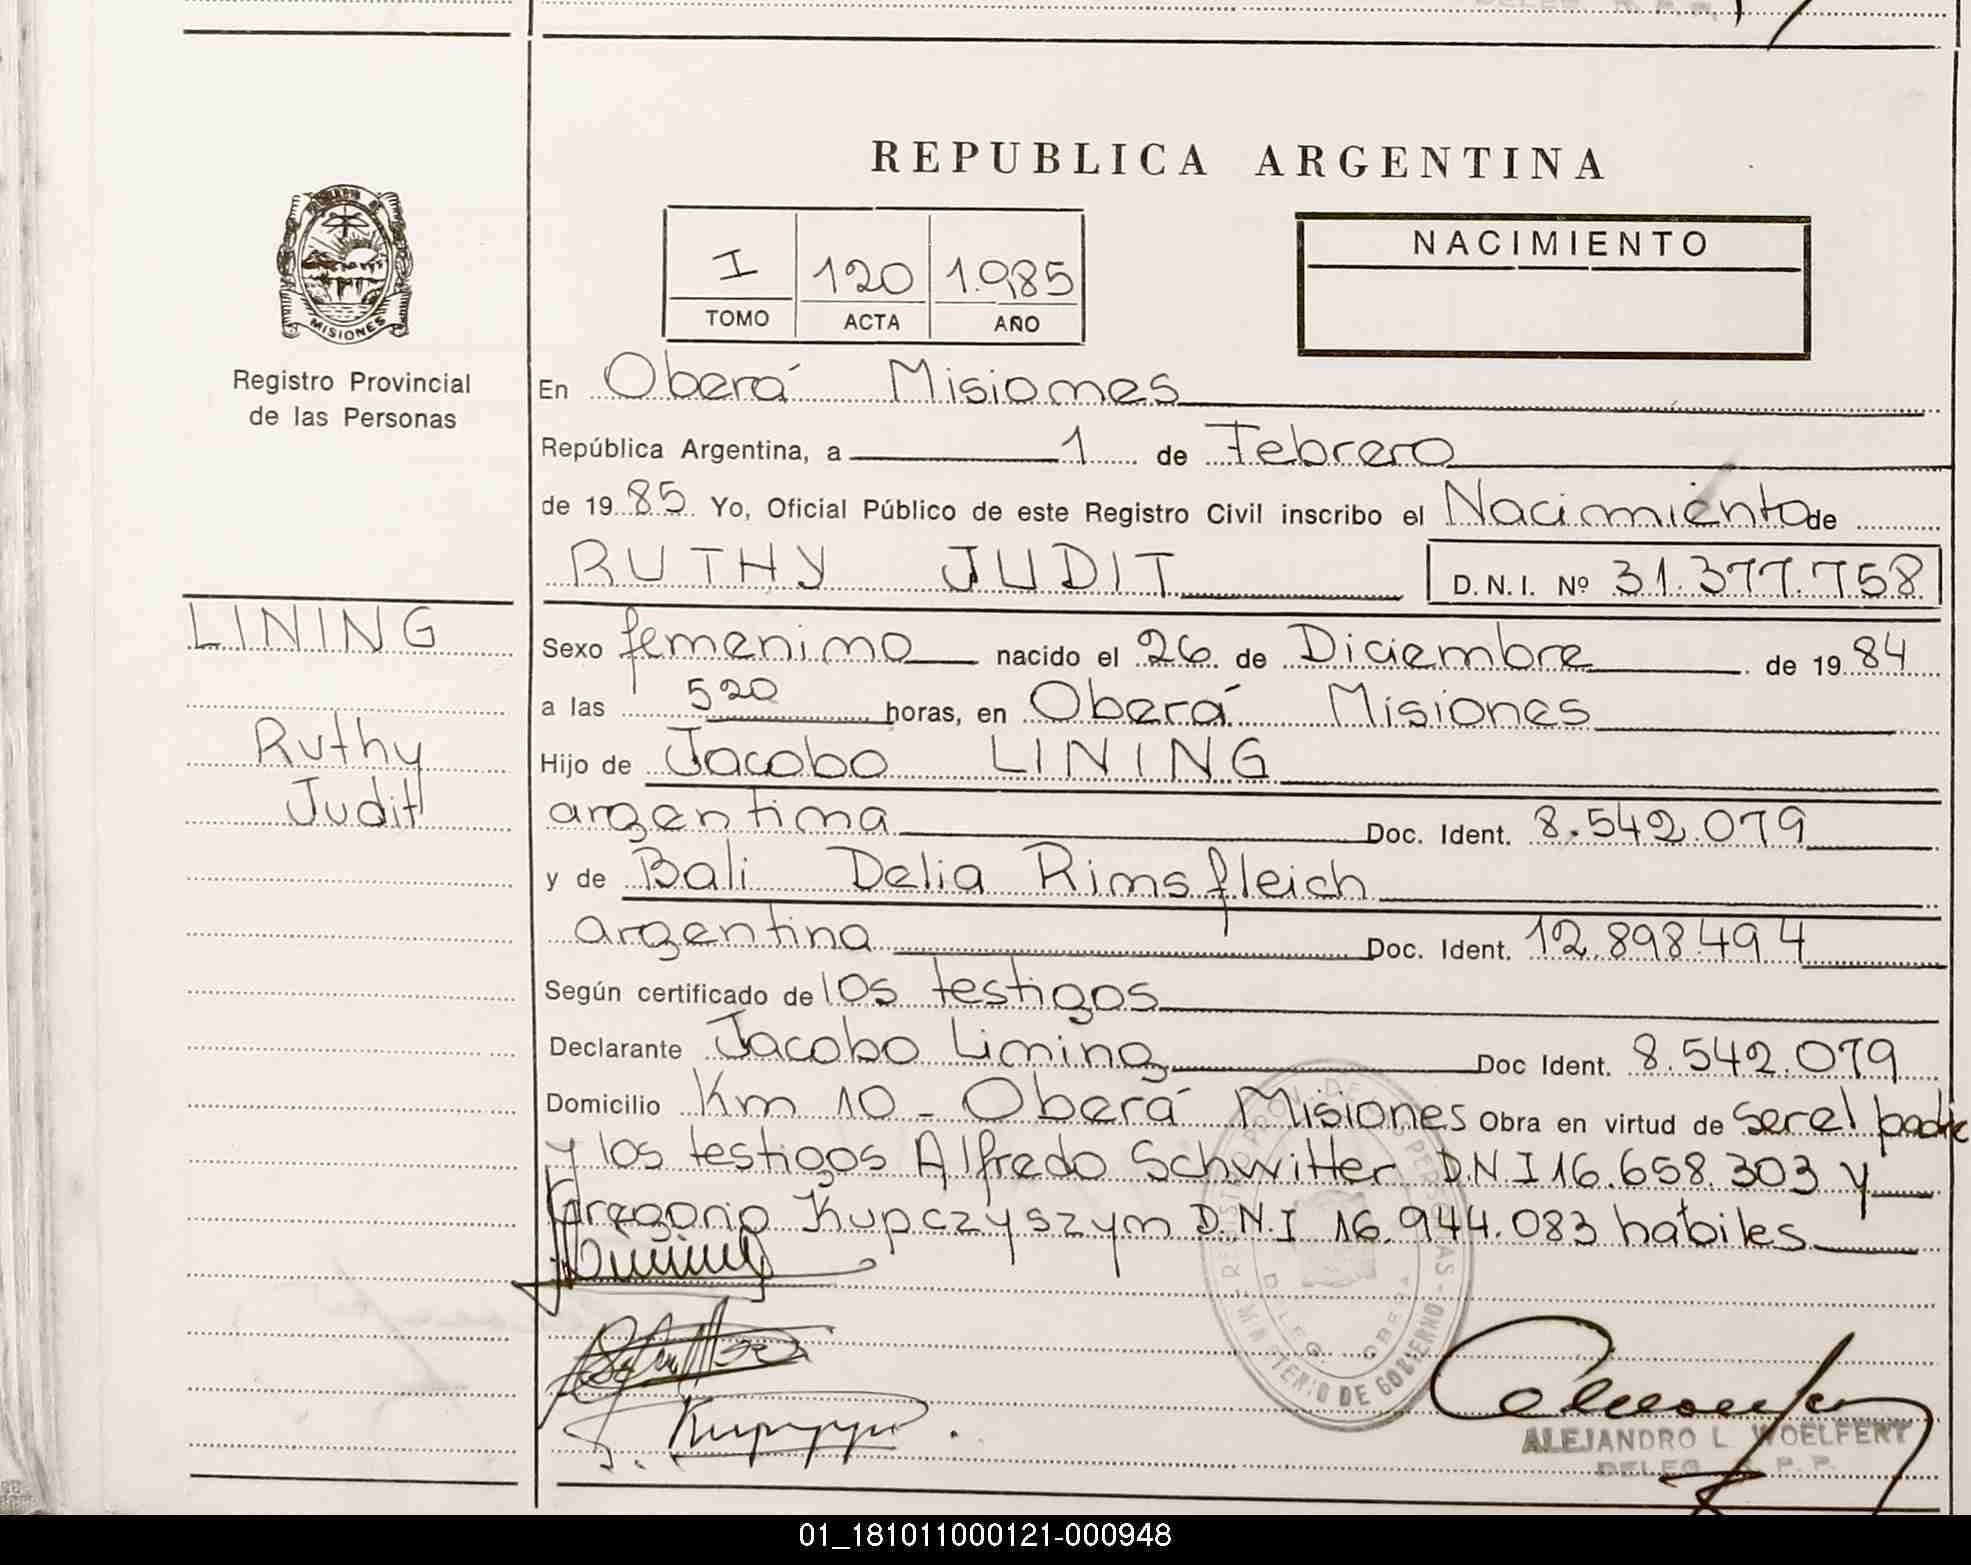 REPUBLICA ARGENTINA
I 120 1.985
TOMO ACTA AÑO
NACIMIENTO
MISIONES
Registro Provincial
de las Personas
En Oberá Misiones
República Argentina, a 1 de Febrero
de 19 85 Yo, Oficial Público de este Registro Civil inscribo el Nacimiento de
RUTHY JUDIT D.N.I. Nº 31.377.758
LINING
Ruthy
Judit
Sexo femenino nacido el 26 de Diciembre de 19 84
a las 520 horas, en Oberá Misiones
Hijo de Jacobo LINING
argentina Doc. Ident. 8.542.079
y de Bali Delia Rimsfleich
argentina Doc. Ident. 12.898.494
Según certificado de los testigos
Declarante Jacobo Lining Doc Ident. 8.542.079
Domicilio Km 10 - Oberá Misiones Obra en virtud de ser el padre
y los testigos Alfredo Schwitter D.N.I 16.658.303 y
Gregorio Kupczyszyn D.N.I 16.944.083 habiles
ALEJANDRO L. WOELFERT
DELEG. R. P. P.
01_181011000121-000948